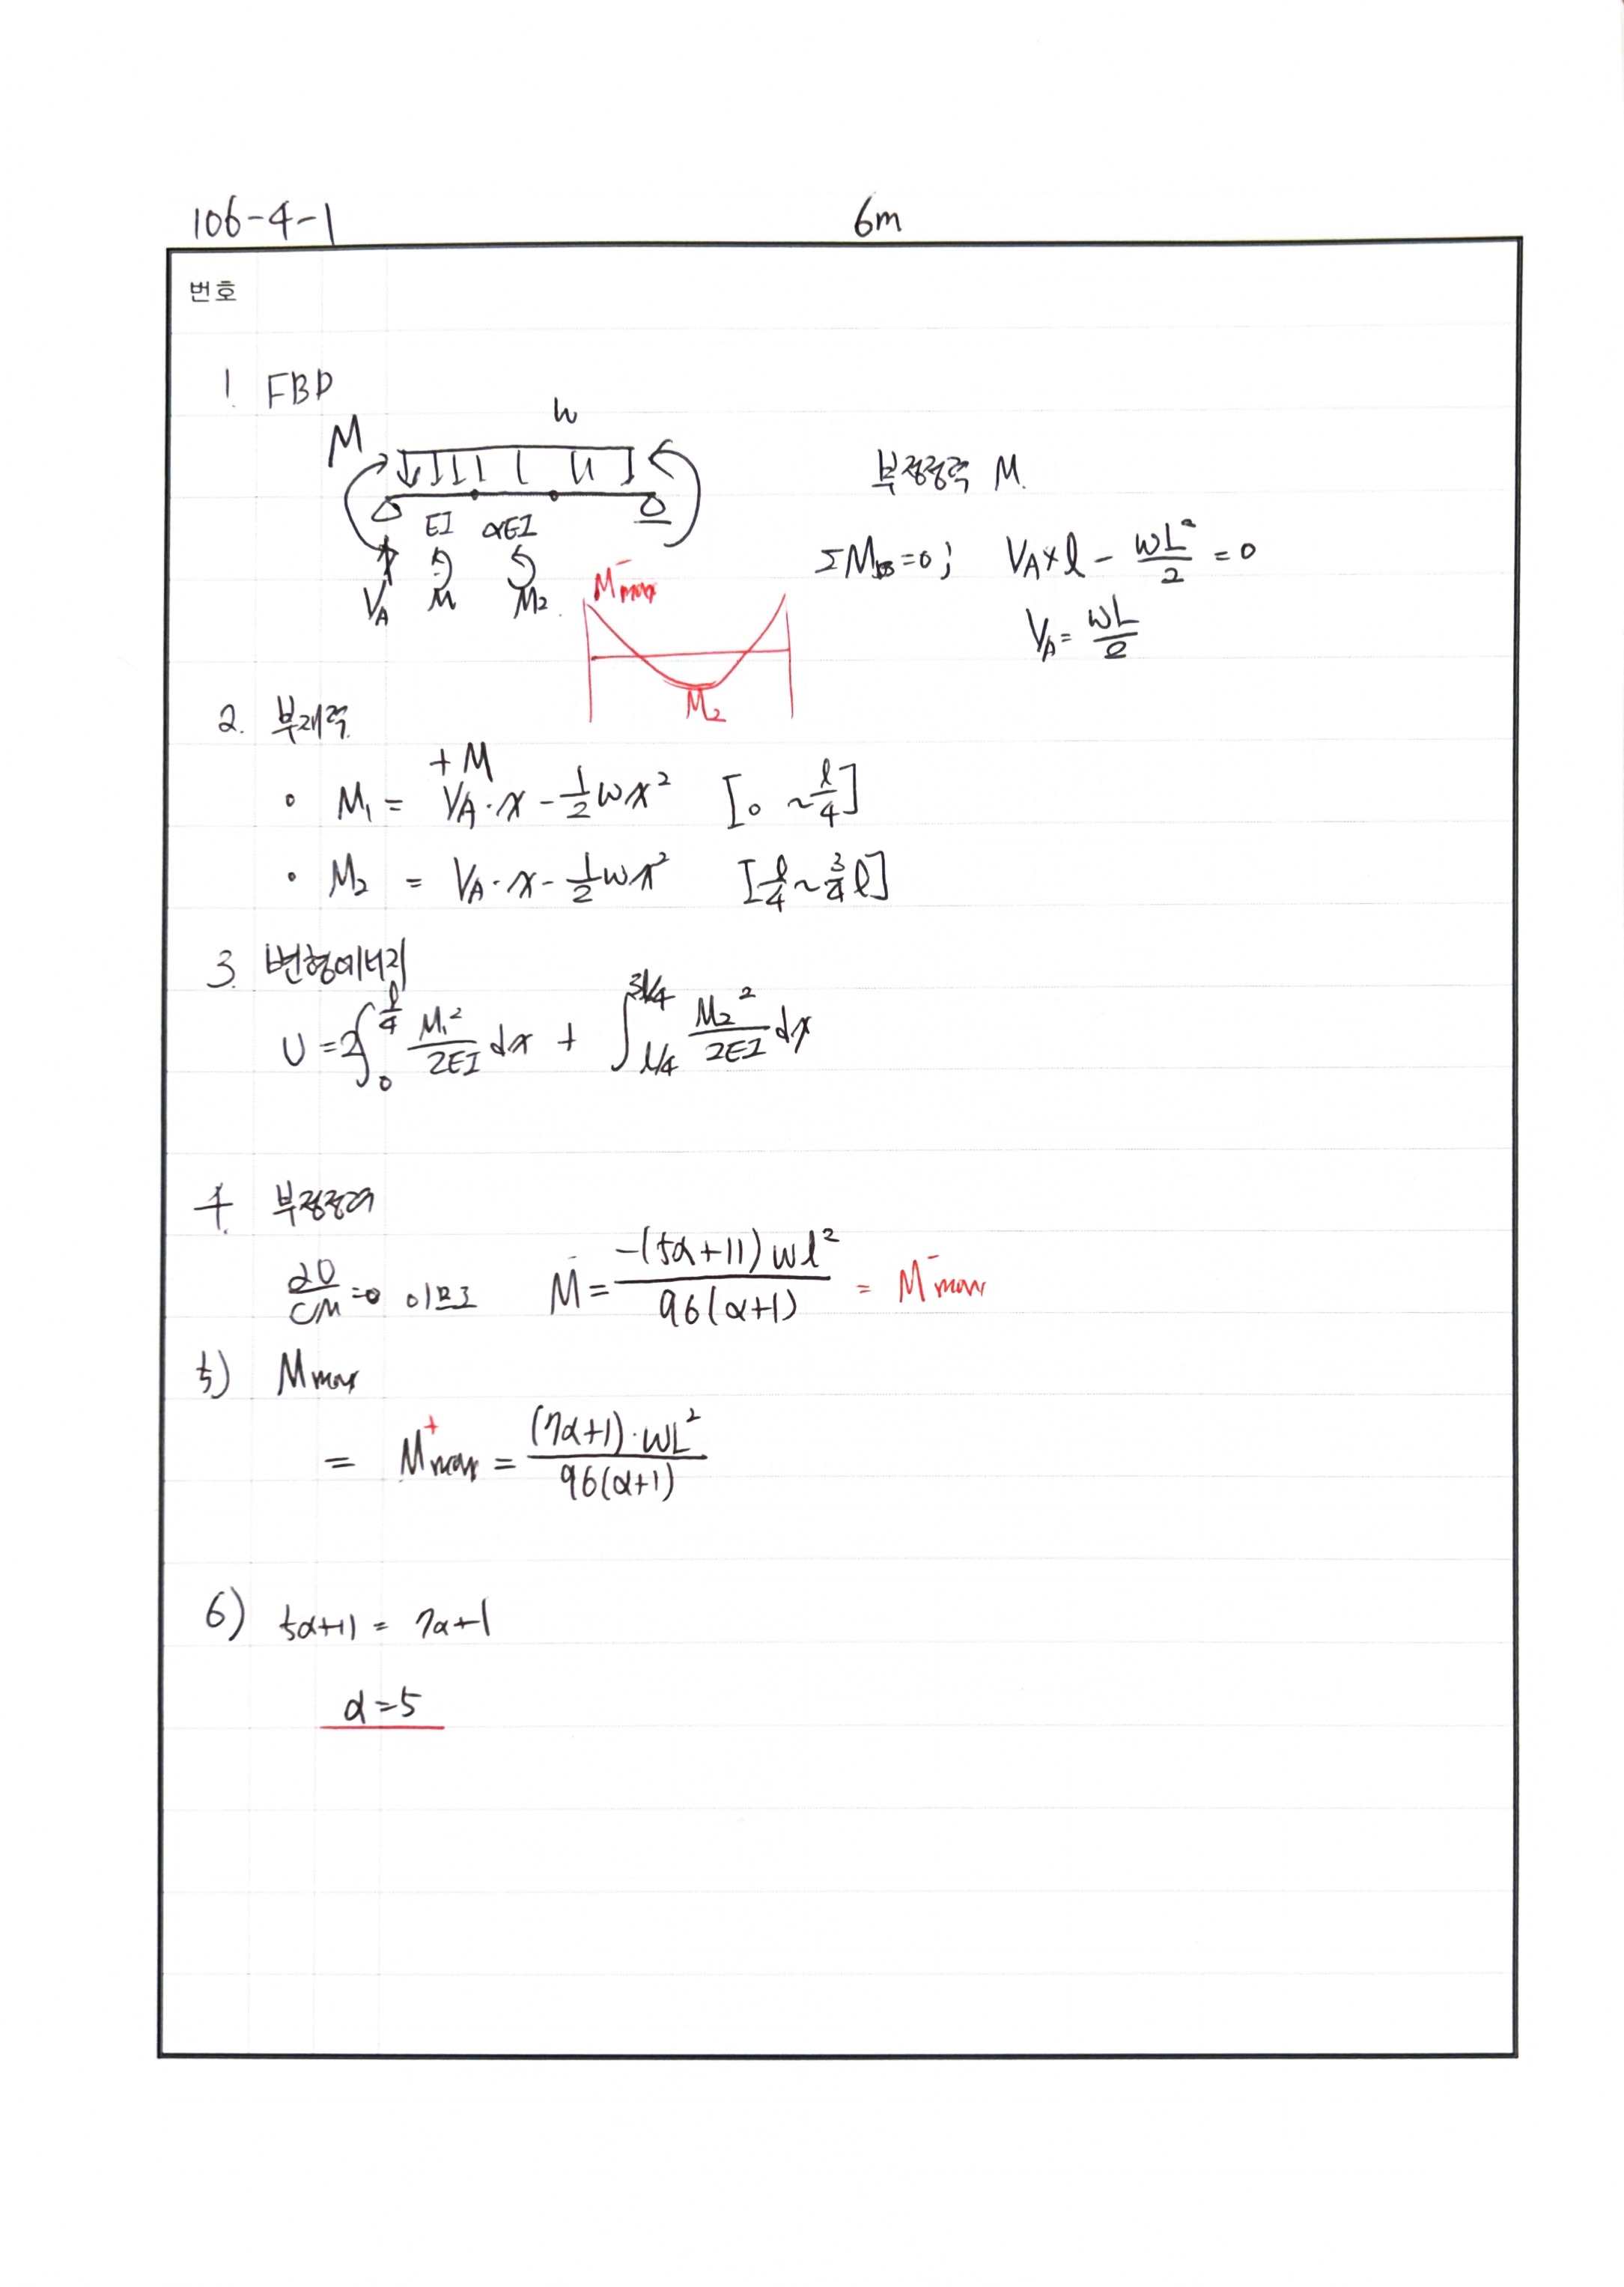 106-4-1 6m
번호
1. FBD
M w
EI αEI
V_A M M₂
M⁻max
M₂
부정정력 M.
ΣM_B=0; V_A×l - wL²/2 = 0
V_A = wL/2
2. 부재력
+M
• M₁ = V_A·x - 1/2 wx² [0 ~ l/4]
• M₂ = V_A·x - 1/2 wx² [l/4 ~ 3/4 l]
3. 변형에너지
U = 2∫₀^(l/4) M₁²/2EI dx + ∫_(l/4)^(3l/4) M₂²/2EI dx
4. 부정정력
∂U/∂M=0 이므로 M = -(5α+11)wl²/96(α+1) = M⁻max
5) Mmax
= M⁺max = (7α+1)·wL²/96(α+1)
6) 5α+11 = 7α+1
α=5